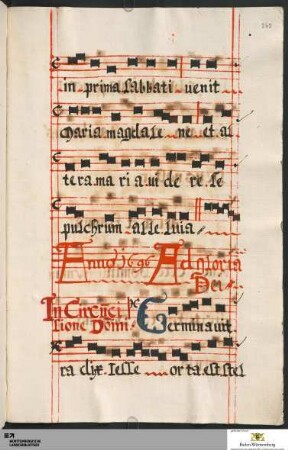 in prima sabbati venit
maria magdale ne et al
tera ma ri a ui de re se
pulchrum alleluia
Anno 1696 Ad gloria
Dei
In Circunci
sione Domi Germinavit
ra dix Iesse orta est stel
Baden-Württemberg